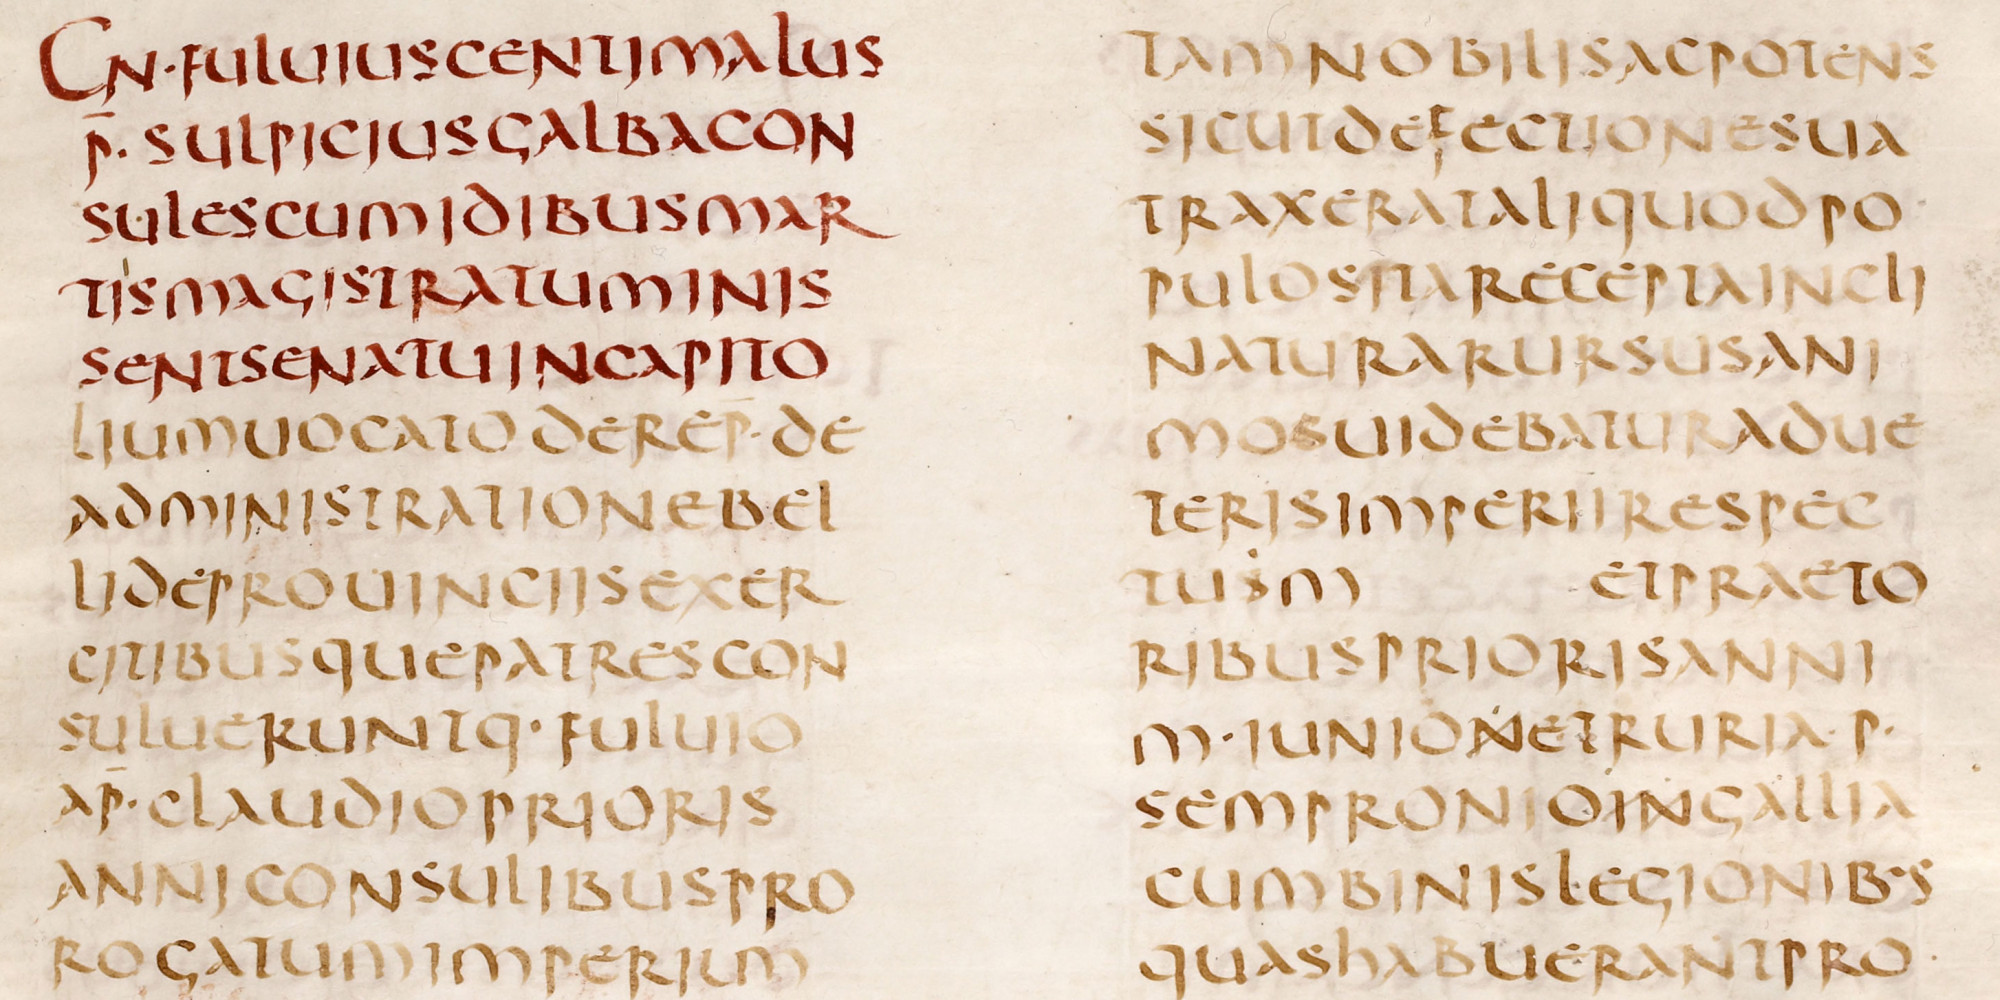 CN·FULUIUSCENTIMALUS
P̄·SULPICIUSGALBACON
SULESCUMIDIBUSMAR
TISMAGISTRATUMINIS
SENTSENATUINCAPITO
LIUMUOCATODEREP̄·DE
ADMINISTRATIONEBEL
LIDEPROUINCIISEXER
CITIBUSQUEPATRESCON
SULUERUNTQ·FULUIO
AP̄·CLAUDIOPRIORIS
ANNICONSULIBUSPRO
ROGATUMIMPERIUM
TAMNOBILISACPOTENS
SICUTDEFECTIONESUA
TRAXERATALIQUODPO
PULOSITARECEPTAINCLI
NATURARURSUSANI
MOSUIDEBATURADUE
TERISIMPERIIRESPEC
TUSM ETPRAETO
RIBUSPRIORISANNI
M·IUNIONETRURIA·P·
SEMPRONIOINGALLIA
CUMBINISLEGIONIB·S
QUASHABUERANTPRO